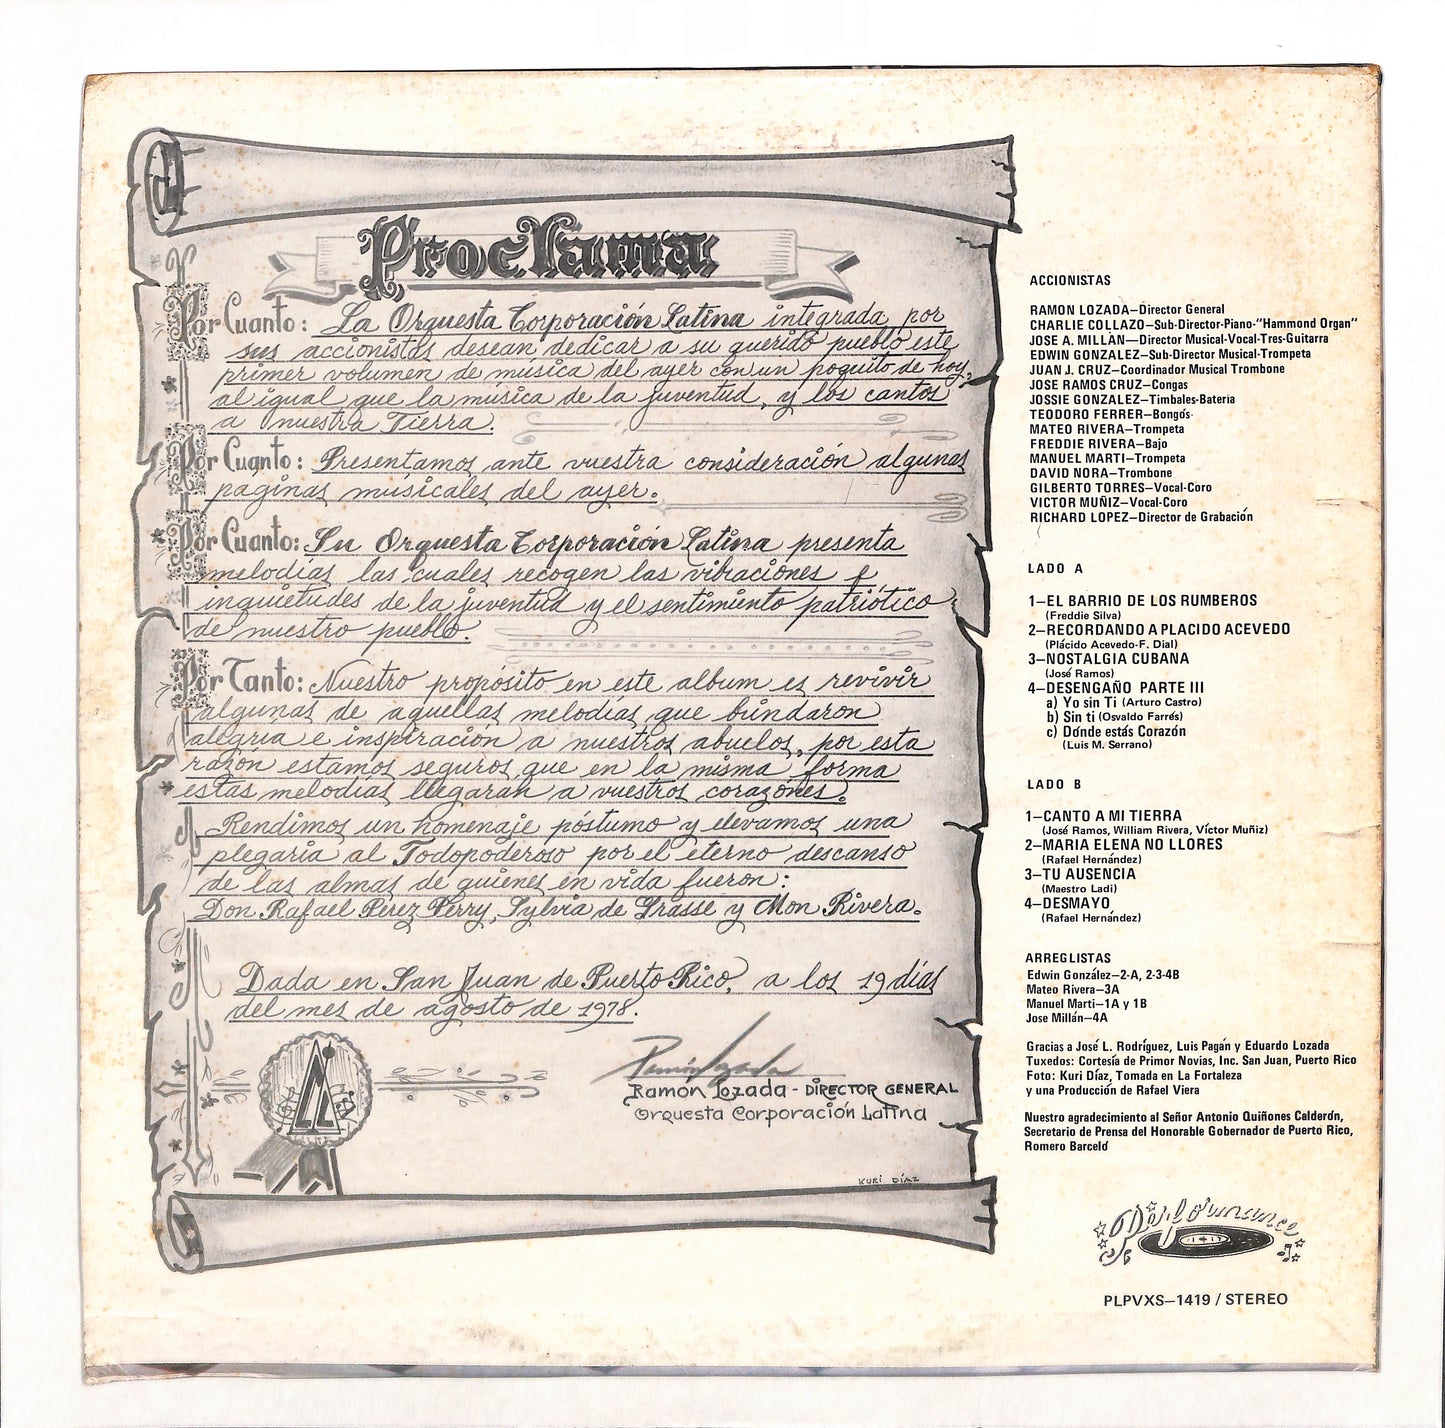 Proclama
Por Cuanto: La Orquesta Corporación Latina integrada por
sus accionistas desean dedicar a su querido pueblo este
primer volumen de música del ayer con un poquito de hoy,
al igual que la música de la juventud, y los cantos
a nuestra Tierra.
Por Cuanto: Presentamos ante vuestra consideración algunas
paginas musicales del ayer.
Por Cuanto: Su Orquesta Corporación Latina presenta
melodias las cuales recogen las vibraciones e
inquietudes de la juventud y el sentimiento patriótico
de nuestro pueblo.
Por Tanto: Nuestro propósito en este album es revivir
algunas de aquellas melodías que bundaron
alegria e inspiración a nuestros abuelos, por esta
razón estamos seguros que en la misma forma
estas melodias llegaran a vuestros corazónes.
Rendimos un homenaje póstumo y elevamos una
plegaria al Todopoderoso por el eterno descanso
de las almas de quienes en vida fueron:
Don Rafael Pérez Perry, Sylvia de Grasse y Mon Rivera.
Dada en San Juan de Puerto Rico, a los 19 días
del mes de agosto de 1978.
Ramón Lozada
Ramón Lozada - DIRECTOR GENERAL
Orquesta Corporación Latina
KURI DÍAZ
ACCIONISTAS
RAMON LOZADA—Director General
CHARLIE COLLAZO—Sub-Director-Piano-"Hammond Organ"
JOSE A. MILLAN—Director Musical-Vocal-Tres-Guitarra
EDWIN GONZALEZ—Sub-Director Musical-Trompeta
JUAN J. CRUZ—Coordinador Musical Trombone
JOSE RAMOS CRUZ—Congas
JOSSIE GONZALEZ—Timbales-Bateria
TEODORO FERRER—Bongós
MATEO RIVERA—Trompeta
FREDDIE RIVERA—Bajo
MANUEL MARTI—Trompeta
DAVID NORA—Trombone
GILBERTO TORRES—Vocal-Coro
VICTOR MUÑIZ—Vocal-Coro
RICHARD LOPEZ—Director de Grabación
LADO A
1—EL BARRIO DE LOS RUMBEROS
(Freddie Silva)
2—RECORDANDO A PLACIDO ACEVEDO
(Plácido Acevedo-F. Dial)
3—NOSTALGIA CUBANA
(José Ramos)
4—DESENGAÑO PARTE III
a) Yo sin Ti (Arturo Castro)
b) Sin ti (Osvaldo Farrés)
c) Dónde estás Corazón
(Luis M. Serrano)
LADO B
1—CANTO A MI TIERRA
(José Ramos, William Rivera, Víctor Muñiz)
2—MARIA ELENA NO LLORES
(Rafael Hernández)
3—TU AUSENCIA
(Maestro Ladi)
4—DESMAYO
(Rafael Hernández)
ARREGLISTAS
Edwin González—2-A, 2-3-4B
Mateo Rivera—3A
Manuel Marti—1A y 1B
Jose Millán—4A
Gracias a José L. Rodríguez, Luis Pagán y Eduardo Lozada
Tuxedos: Cortesía de Primor Novias, Inc. San Juan, Puerto Rico
Foto: Kuri Díaz, Tomada en La Fortaleza
y una Producción de Rafael Viera
Nuestro agradecimiento al Señor Antonio Quiñones Calderón,
Secretario de Prensa del Honorable Gobernador de Puerto Rico,
Romero Barceló
Performance
1419
PLPVXS—1419 / STEREO